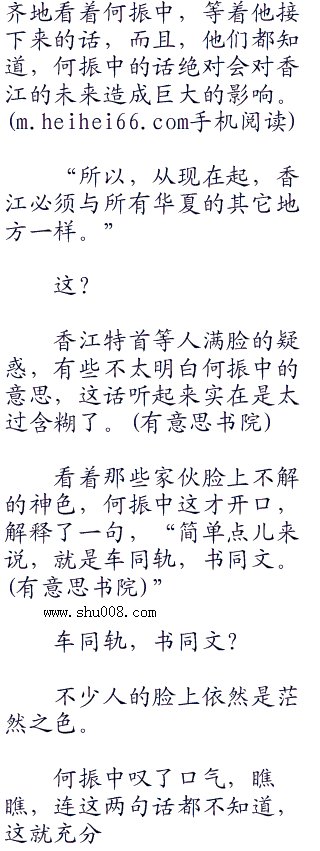 齐地看着何振中，等着他接
下来的话，而且，他们都知
道，何振中的话绝对会对香
江的未来造成巨大的影响。
(m.heihei66.com手机阅读)
“所以，从现在起，香
江必须与所有华夏的其它地
方一样。”
这？
香江特首等人满脸的疑
惑，有些不太明白何振中的
意思，这话听起来实在是太
过含糊了。(有意思书院)
看着那些家伙脸上不解
的神色，何振中这才开口，
解释了一句，“简单点儿来
说，就是车同轨，书同文。
(有意思书院)”
www.shu008.com
车同轨，书同文？
不少人的脸上依然是茫
然之色。
何振中叹了口气，瞧
瞧，连这两句话都不知道，
这就充分